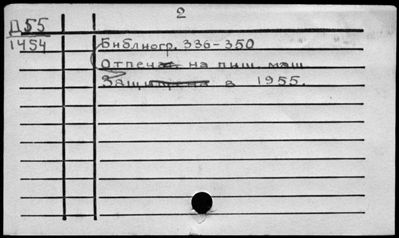 2
Д55
1454
Библиогр. 336-350
Отпечат на пиш. маш
Защищена в 1955.